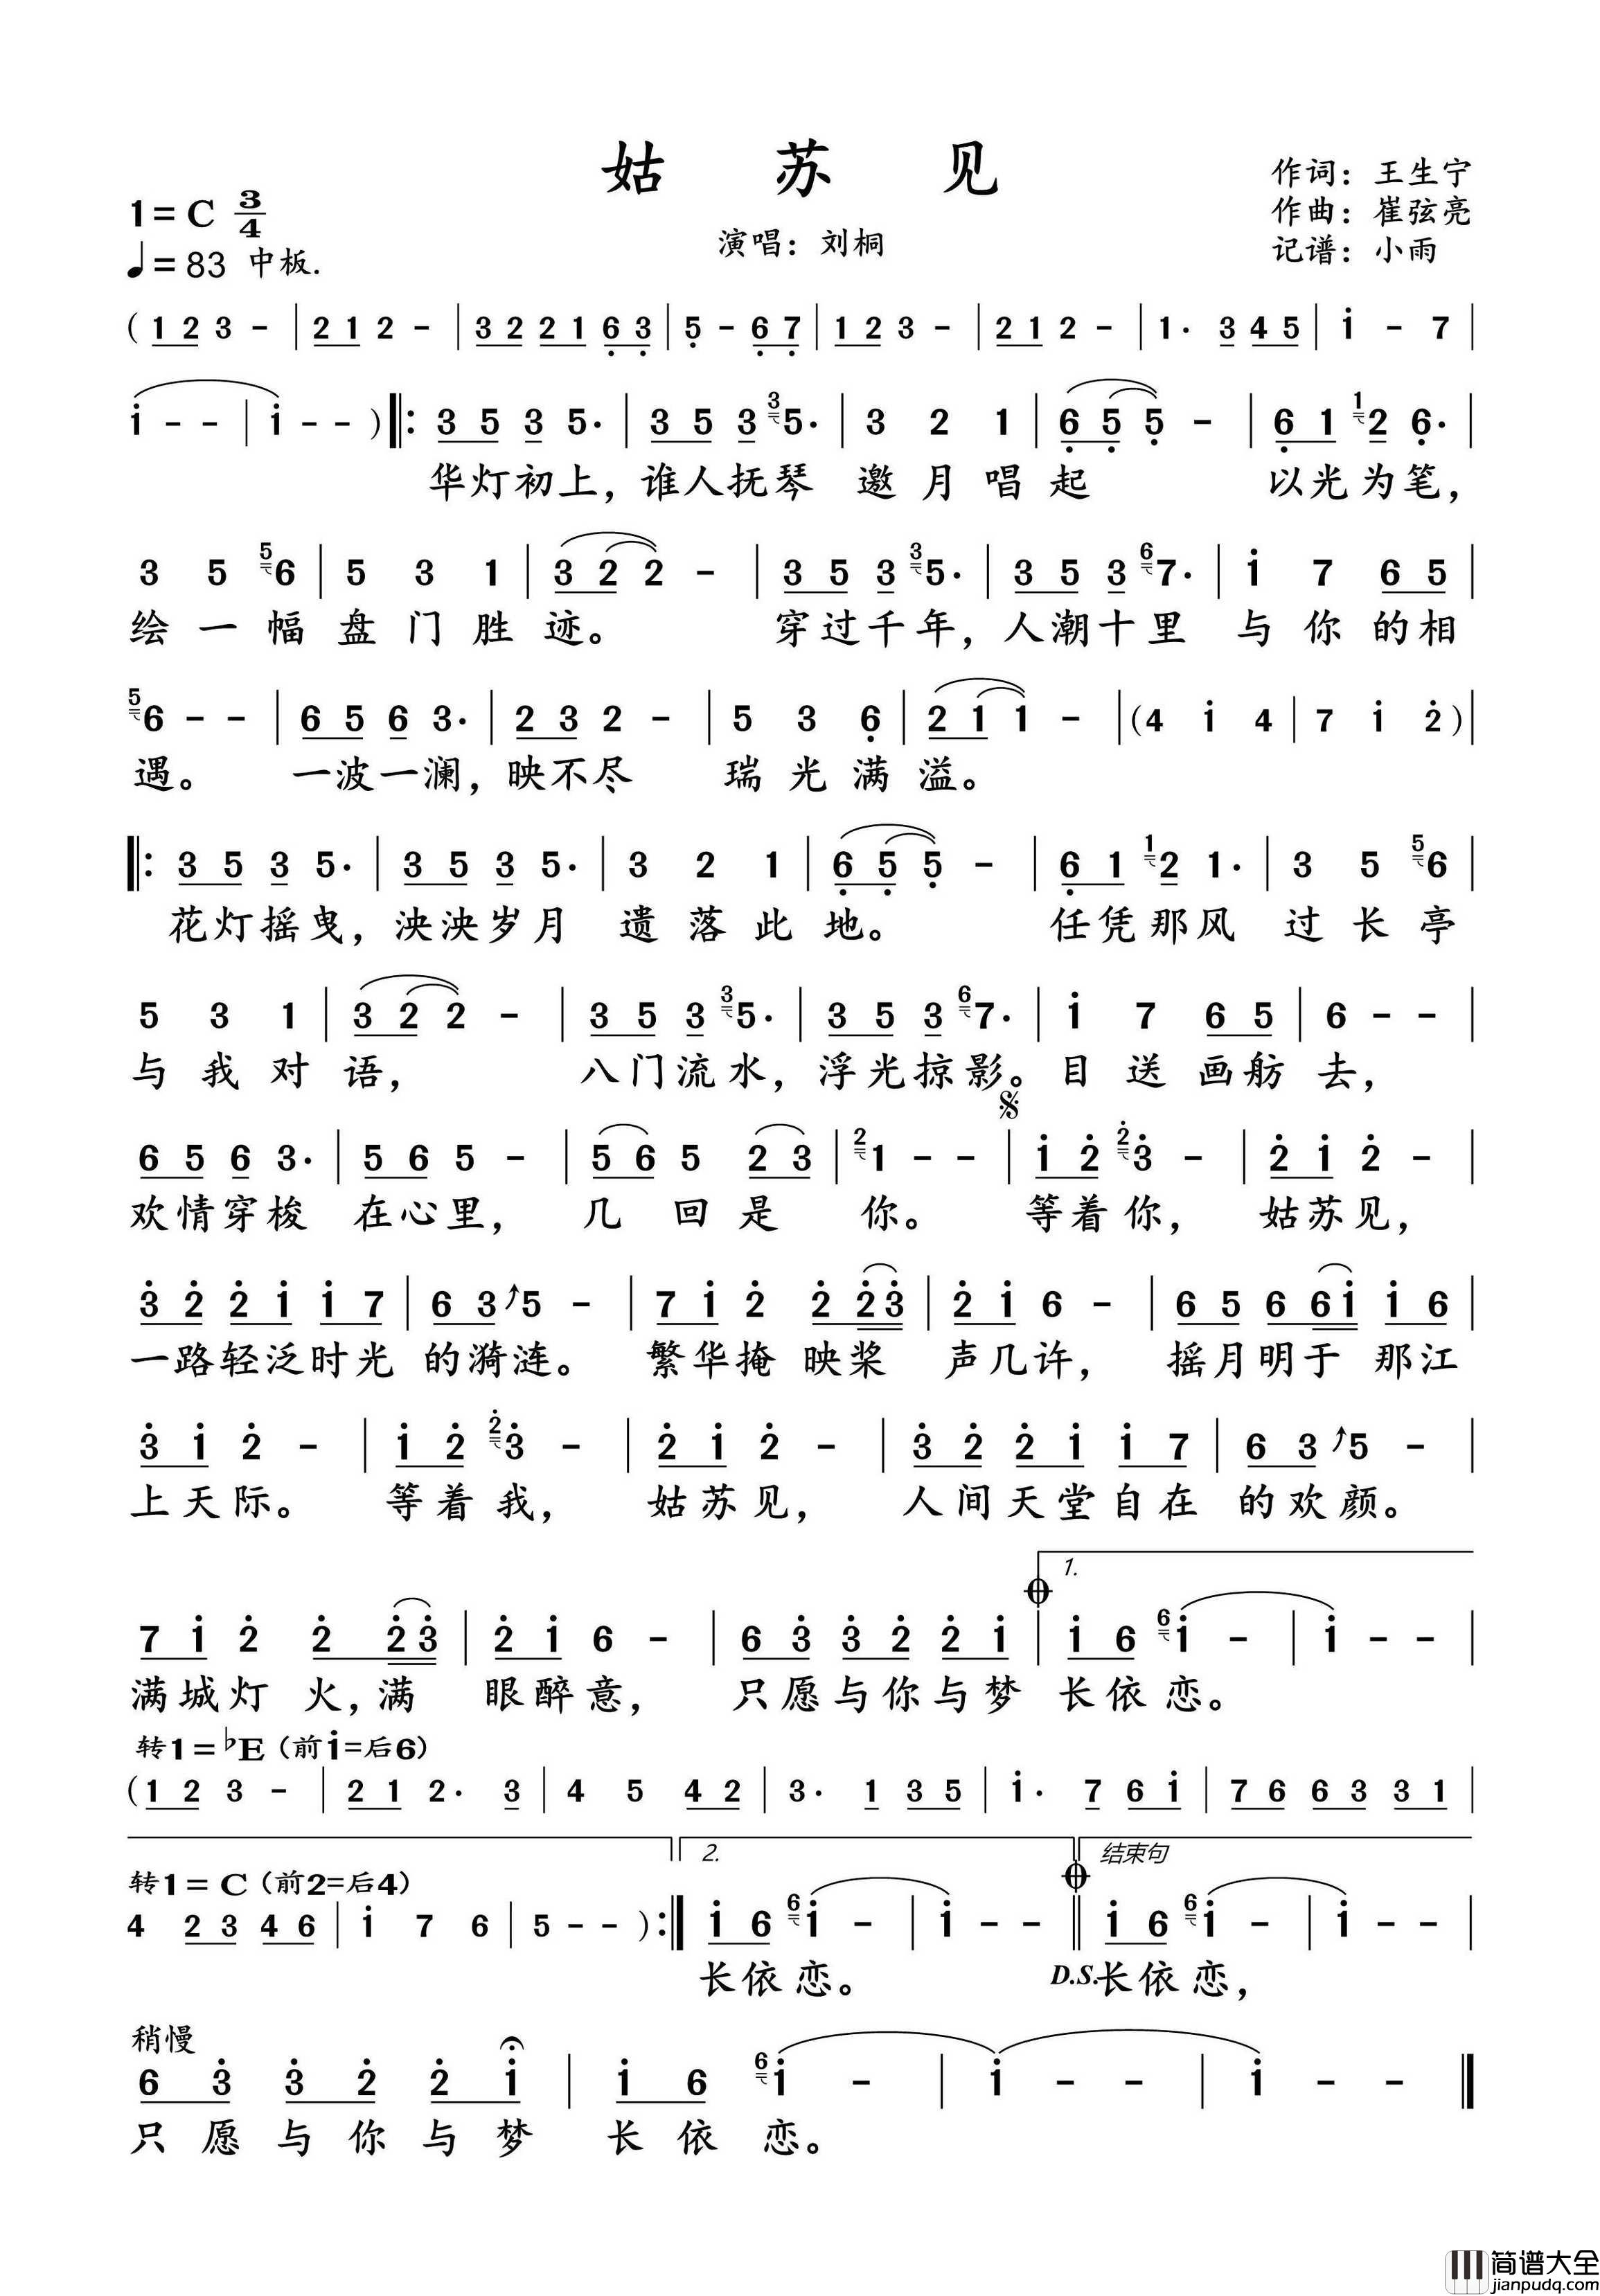 姑 苏 见
作词：王生宁
1=C 3/4
作曲：崔弦亮
演唱：刘桐
♩=83 中板.
记谱：小雨
( 1 2 3 - | 2 1 2 - | 3 2 2 1 6̣ 3̣ | 5̣ - 6̣ 7̣ | 1 2 3 - | 2 1 2 - | 1 . 3 4 5 | 1̇ - 7 |
1̇ - - | 1̇ - - ) ‖: 3 5 3 5 . | 3 5 3 3 5 . | 3 2 1 | 6̣ 5̣ 5̣ - | 6̣ 1 1 2 6̣ . |
华灯初上，谁人抚琴 邀月唱起 以光为笔，
3 5 5 6 | 5 3 1 | 3 2 2 - | 3 5 3 3 5 . | 3 5 3 6 7 . | 1̇ 7 6 5 |
绘一幅盘门胜迹。 穿过千年，人潮十里 与你的相
5 6 - - | 6 5 6 3 . | 2 3 2 - | 5 3 6̣ | 2 1 1 - | ( 4 1̇ 4 | 7 1̇ 2̇ ) |
遇。 一波一澜，映不尽 瑞光满溢。
‖: 3 5 3 5 . | 3 5 3 5 . | 3 2 1 | 6̣ 5̣ 5̣ - | 6̣ 1 1 2 1 . | 3 5 5 6 |
花灯摇曳，泱泱岁月 遗落此地。 任凭那风 过长亭
5 3 1 | 3 2 2 - | 3 5 3 3 5 . | 3 5 3 6 7 . | 1̇ 7 6 5 | 6 - - |
与我对语， 八门流水，浮光掠影。目送画舫去，
𝄋
6 5 6 3 . | 5 6 5 - | 5 6 5 2 3 | 2 1 - - | 1̇ 2̇ 2̇ 3̇ - | 2̇ 1̇ 2̇ - |
欢情穿梭 在心里， 几回是 你。 等着你， 姑苏见，
3̇ 2̇ 2̇ 1̇ 1̇ 7 | 6 3 5 - | 7 1̇ 2̇ 2̇ 2̇ 3̇ | 2̇ 1̇ 6 - | 6 5 6 6 1̇ 1̇ 6 |
一路轻泛时光 的漪涟。 繁华掩 映桨 声几许， 摇月明于 那江
3̇ 1̇ 2̇ - | 1̇ 2̇ 2̇ 3̇ - | 2̇ 1̇ 2̇ - | 3̇ 2̇ 2̇ 1̇ 1̇ 7 | 6 3 5 - |
上天际。 等着我， 姑苏见， 人间天堂自在 的欢颜。
1.
7 1̇ 2̇ 2̇ 2̇ 3̇ | 2̇ 1̇ 6 - | 6 3̇ 3̇ 2̇ 2̇ 1̇ | 1̇ 6 6 1̇ - | 1̇ - - |
满城灯 火，满 眼醉意， 只愿与你与梦 长依恋。
转1=♭E（前1̇=后6）
( 1 2 3 - | 2 1 2 . 3 | 4 5 4 2 | 3 . 1 3 5 | 1̇ . 7 6 1̇ | 7 6 6 3 3 1 |
2. 结束句
转1=C（前2=后4）
4 2 3 4 6 | 1̇ 7 6 | 5 - - ) :‖ 1̇ 6 6 1̇ - | 1̇ - - ‖ 1̇ 6 6 1̇ - | 1̇ - - |
长依恋。 D.S. 长依恋，
稍慢
6 3̇ 3̇ 2̇ 2̇ 1̇ | 1̇ 6 6 1̇ - | 1̇ - - | 1̇ - - ‖
只愿与你与梦 长依恋。
简谱大全
jianpudq.com